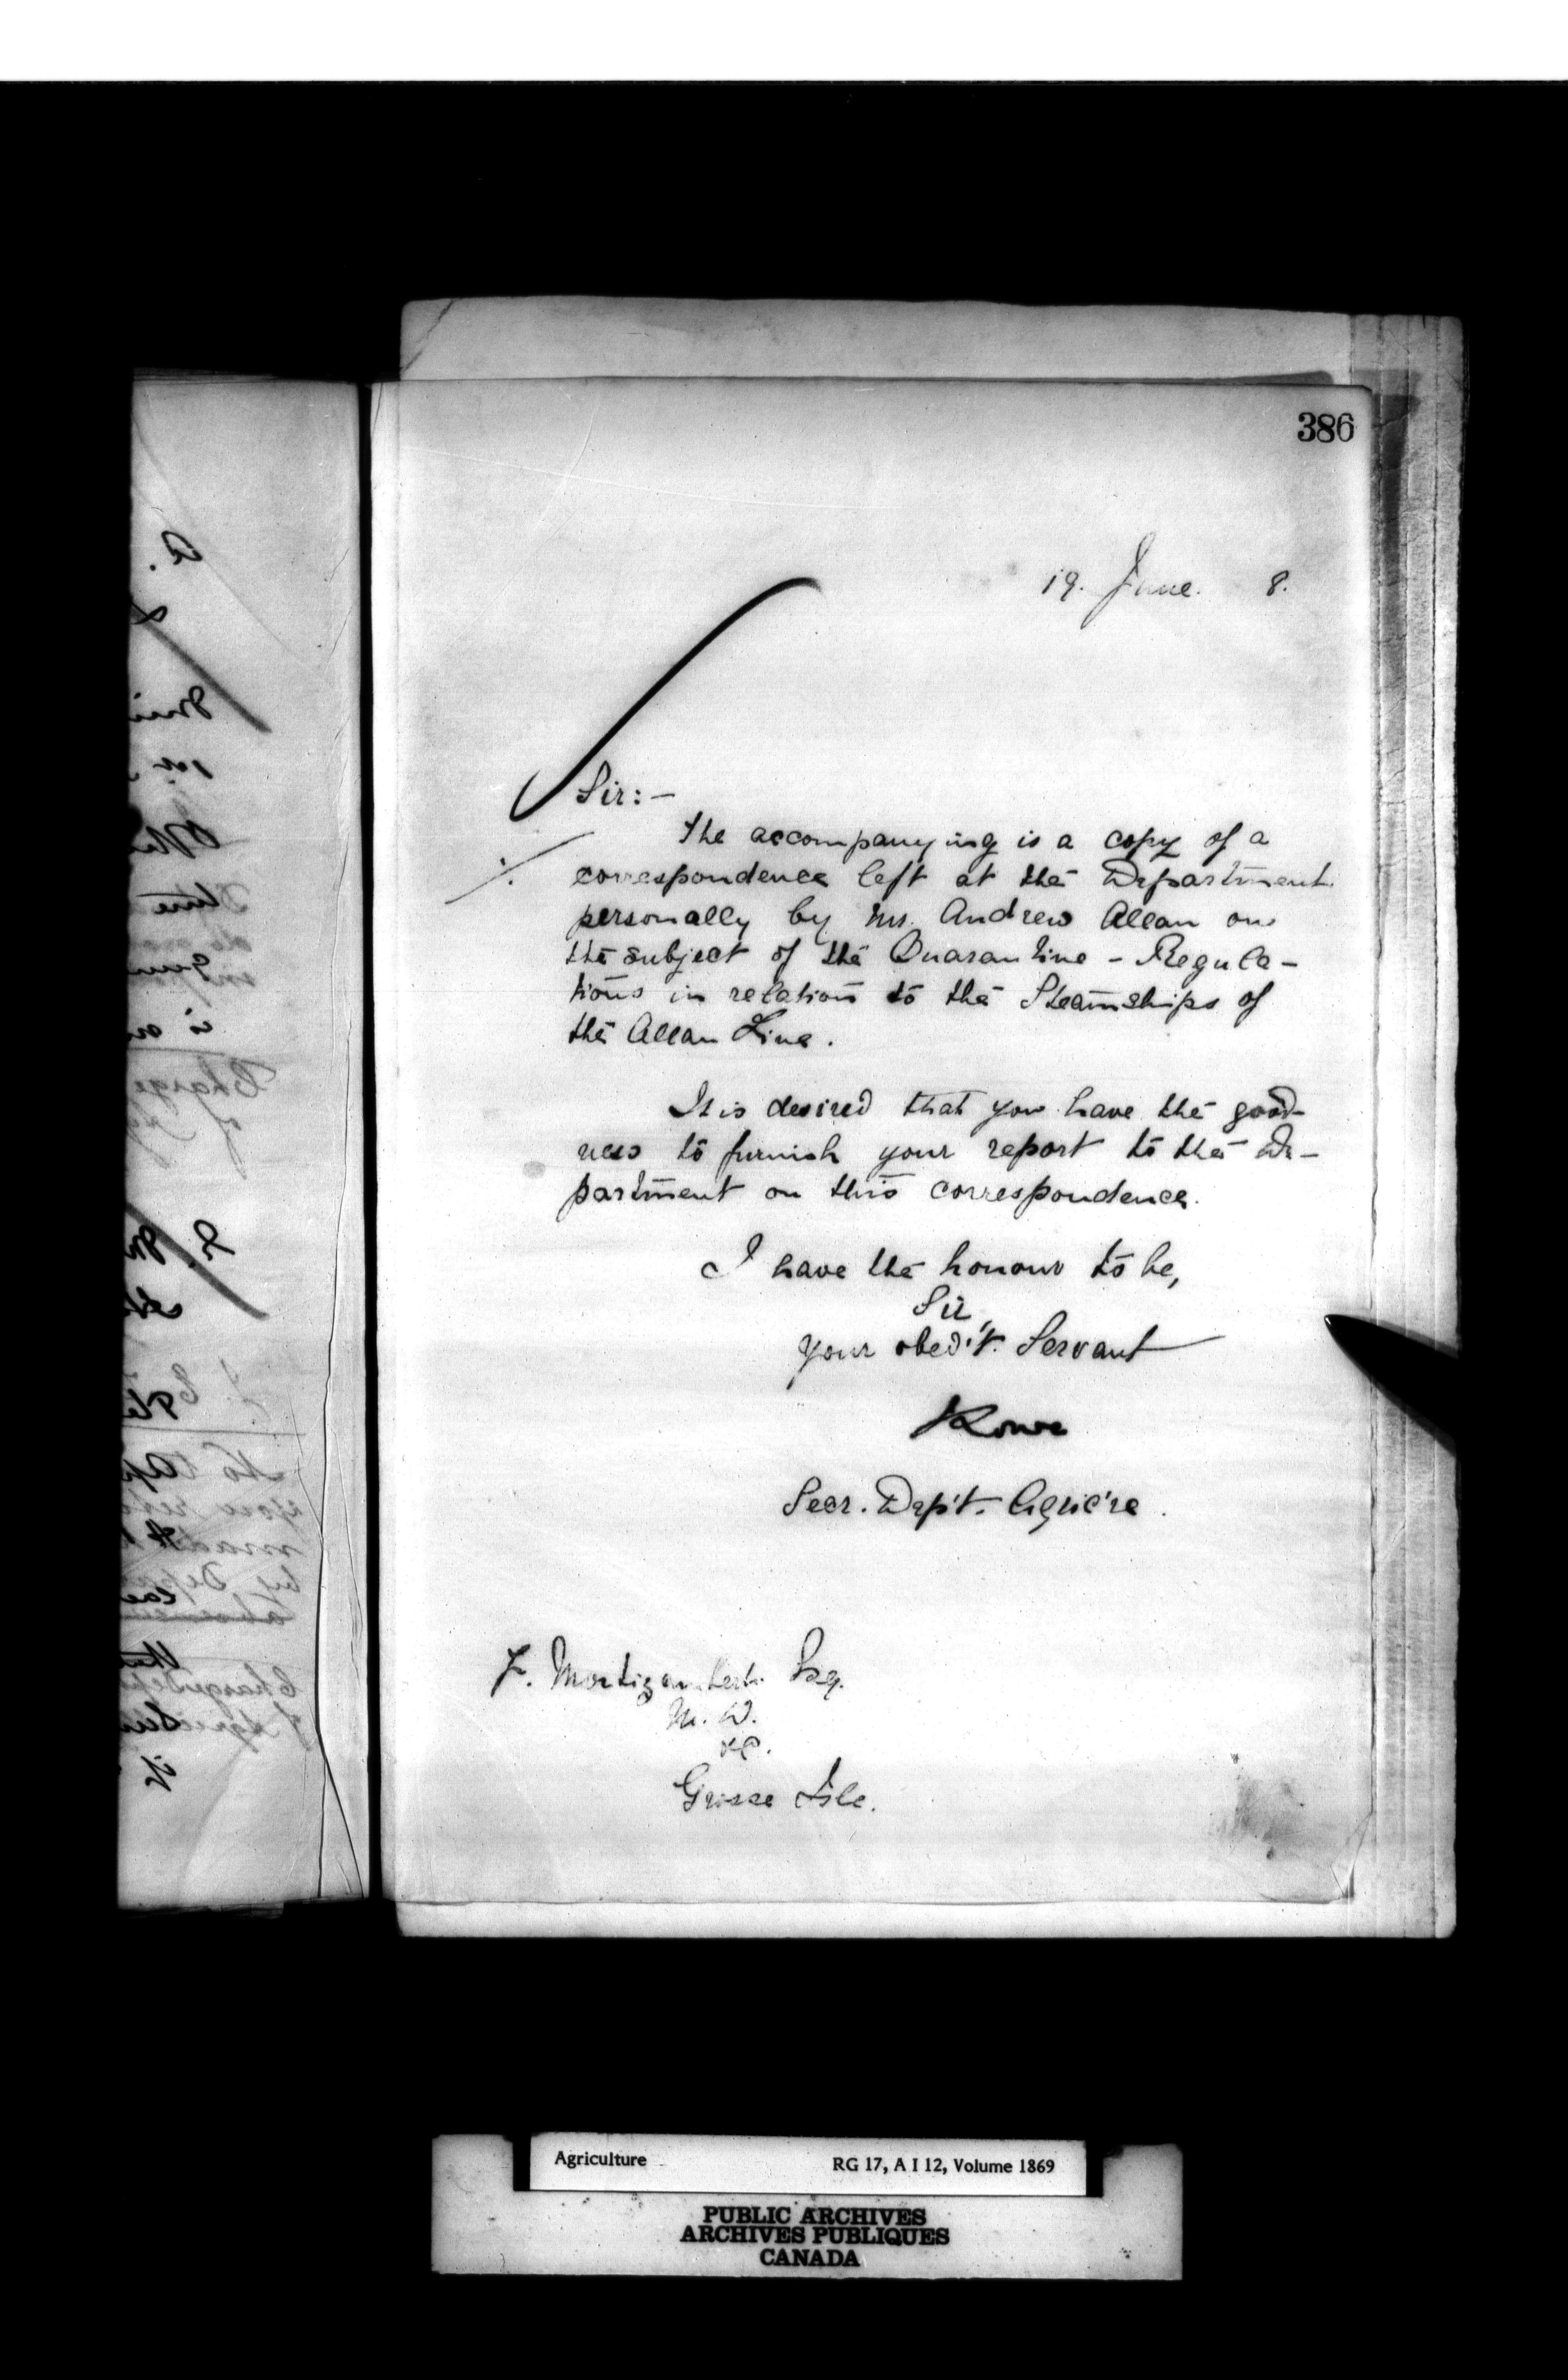 386
19. June. 8.
Sir:—
The accompanying is a copy of a
correspondence left at the Department
personally by Mr. Andrew Allan on
the subject of the Quarantine - Regula-
tions in relation to the Steamships of
the Allan Line.
It is desired that you have the good-
ness to furnish your report to the De-
partment on this correspondence.
I have the honour to be,
Sir,
Your obed't. Servant
Secr. Dep't. Agric're.
F. Montizambert. Esq.
M. D.
&c.
Grosse Isle.
Agriculture RG 17, A I 12, Volume 1869
PUBLIC ARCHIVES
ARCHIVES PUBLIQUES
CANADA